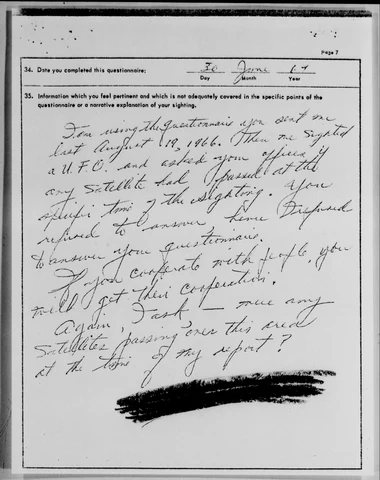 Page 7
34. Date you completed this questionnaire:
30 June 67
Day Month Year
35. Information which you feel pertinent and which is not adequately covered in the specific points of the
questionnaire or a narrative explanation of your sighting.
I am using the questionnaire you sent me
last August 19, 1966. Then we sighted
a U.F.O. and asked your office if
any satellite had passed at the
specific time of the sighting. You
refused to answer, hence I refused
to answer your questionnaire.
If you cooperate with people, you
will get their cooperation.
Again, I ask — were any
satellites passing over this area
at the time of my report?